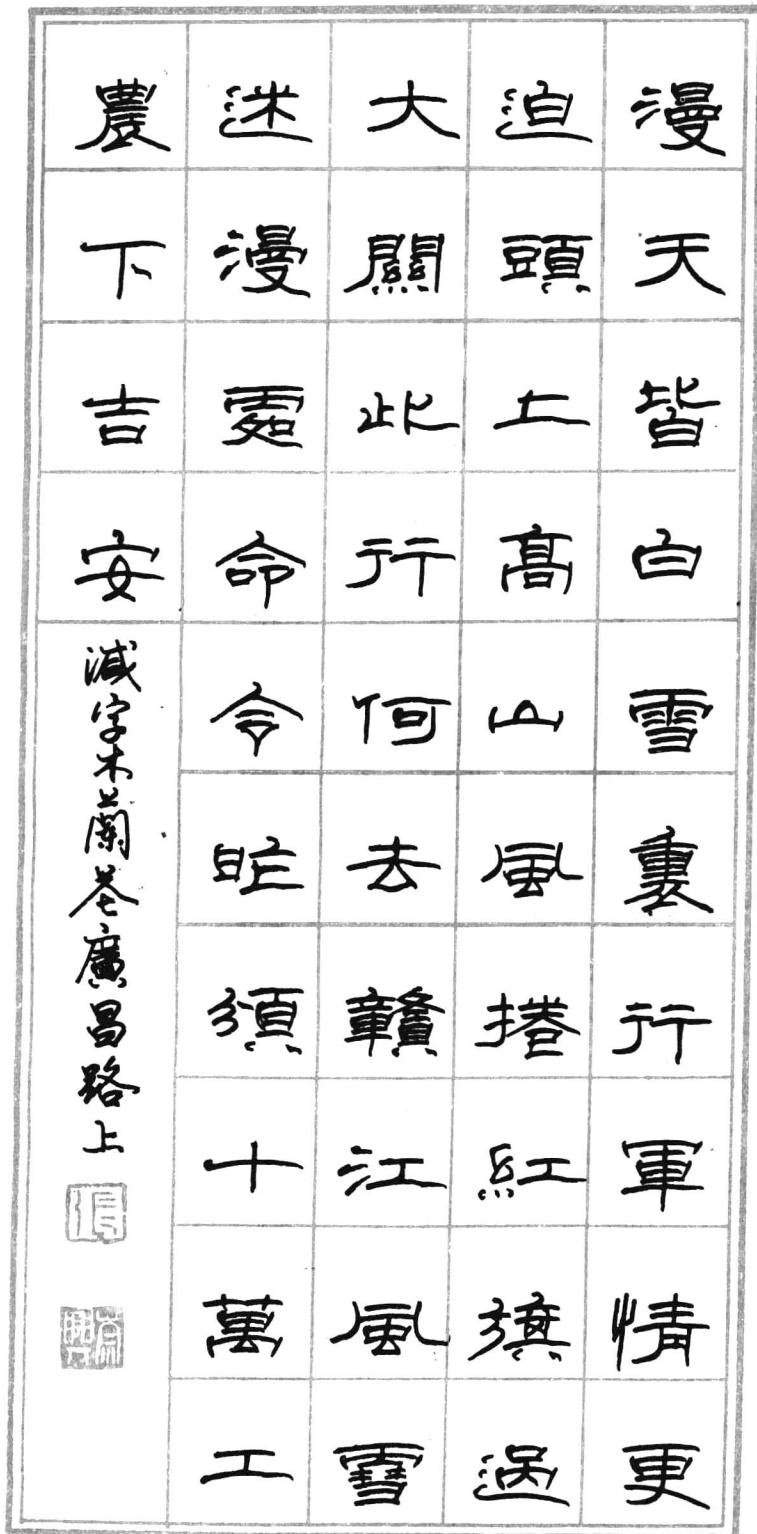 漫天皆白雪裏行軍情更
迫頭上高山風捲紅旗過
大關此行何去贛江風雪
迷漫處命令昨須十萬工
農下吉安
減字木蘭花廣昌路上